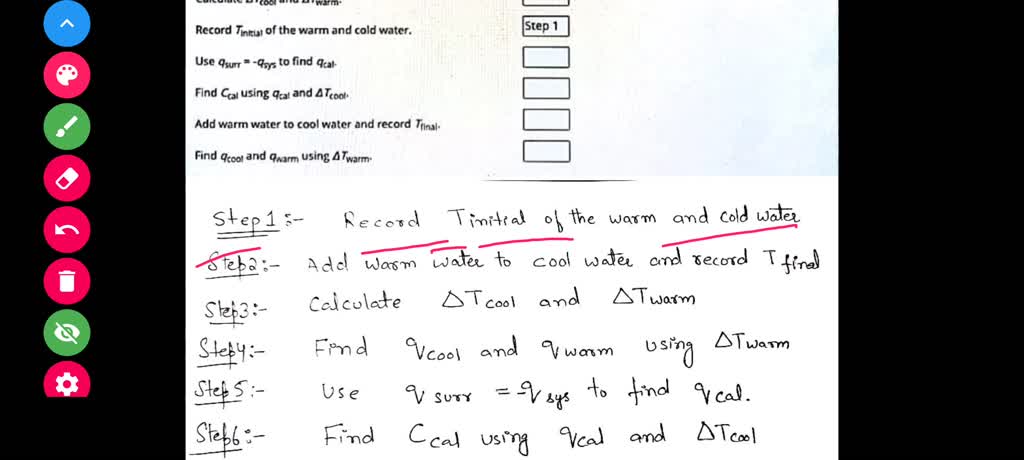 Calculate ΔTcool and ΔTwarm.
Record Tinitial of the warm and cold water.
Step 1
Use qsurr = -qsys to find qcal.
Find Ccal using qcal and ΔTcool.
Add warm water to cool water and record Tfinal.
Find qcool and qwarm using ΔTwarm.
Step1:- Record Tinitial of the warm and cold water
Step2:- Add warm water to cool water and record Tfinal
Step3:- Calculate ΔTcool and ΔTwarm
Step4:- Find qcool and qwarm using ΔTwarm
Step5:- Use qsurr = -qsys to find qcal.
Step6:- Find Ccal using qcal and ΔTcool